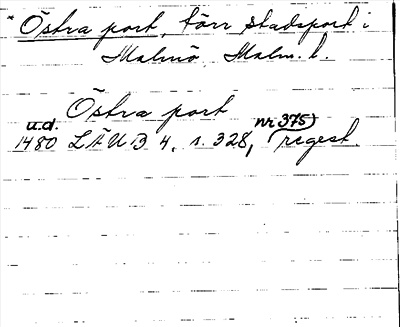 * Östra port, förr stadsport i
Malmö Malm. l.
Östra port
u.d. nr 375)
1480 LÄUB 4, s. 328, regest.